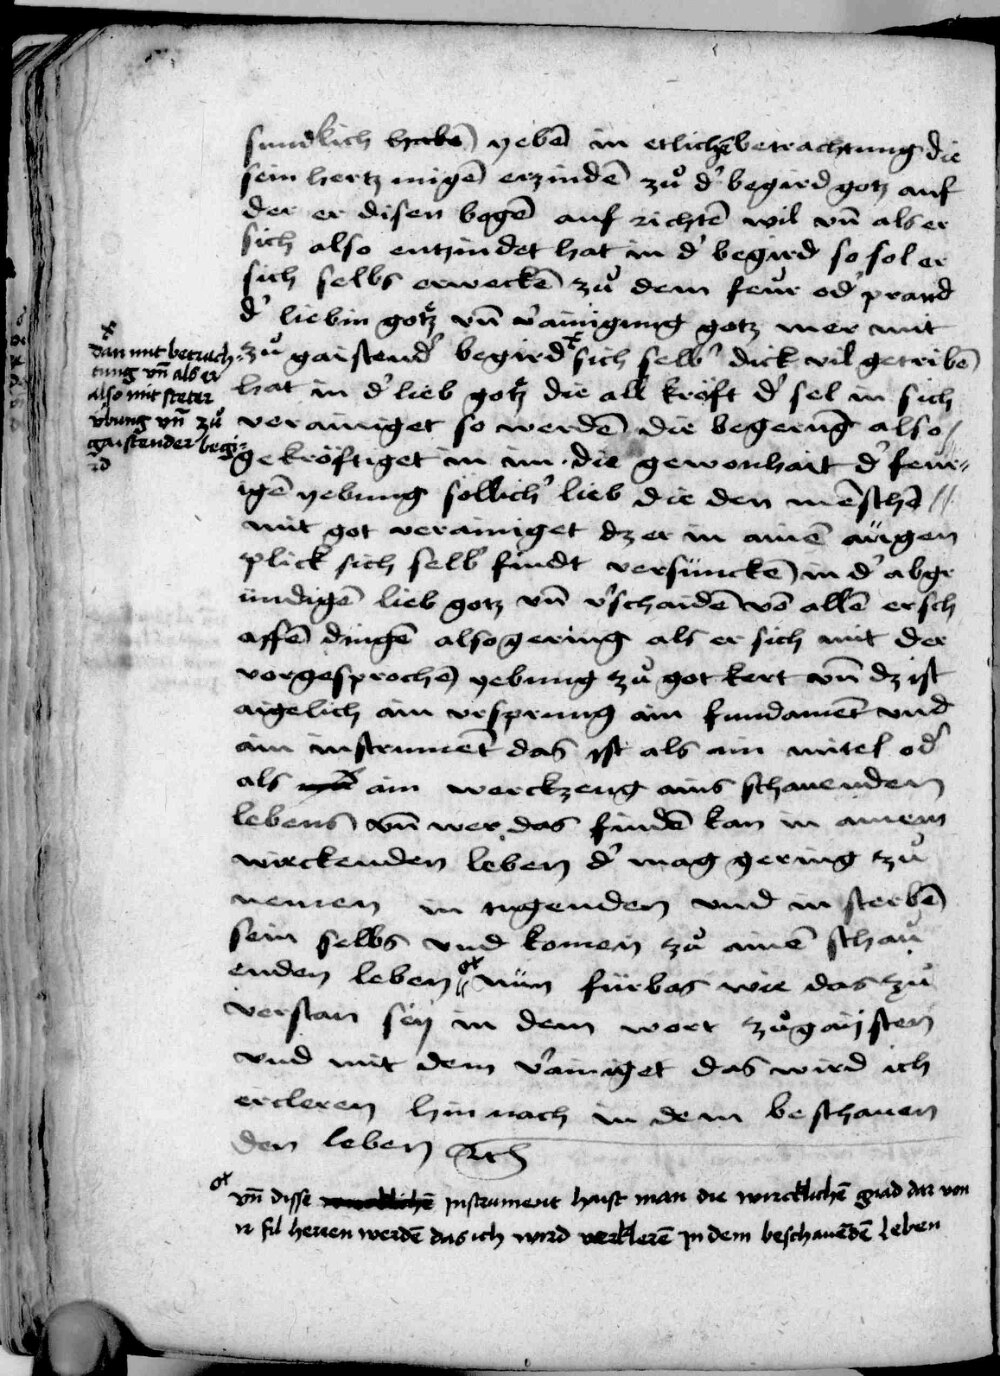 sundlich habē yebē in etlichē betrachtung die
sein hertz migē erzindē zů d' begird gotz auf
der er disen bogē auf richtē wil vn̄ als er
sich also entzindet hat in d' begird so sol er
sich selbs erweckē zů dem feur od' prand
d' liebin gotz vn̄ v'ainigung gotz mer mit
zů gaistend' begird sich selb' dick vil getribē
hat in d' lieb gotz die all kröft d' sel in sich
verainiget so werdē die begerūg also
gekröftiget in im die gewonhait d' feur
igē yebung sollich' lieb die den mēschē
mit got verainiget dz er in ainē augen
plick sich selb' findt versünckē in d' abgr
ündigē lieb gotz vn̄ v'schaidē vō allē ersch
affē dingē also gering als er sich mit der
vorgesprochē yebung zů got kert vn̄ dz ist
aigelich ain vrsprung ain fundamēt vnd
ain instrumēt das ist als ain mitel od'
als ain werckzeug ains schauenden
lebens vn̄ wer das findē kan in ainem
wirckenden leben d' mag gering zů
nemen in tugenden vnd in sterbē
sein selbs vnd komen zů ainē schau
enden leben nün fürbas wie das zů
verstan sey in dem wort zůgaisten
vnd mit dem v'ainiget das wird ich
ercleren hin nach in dem beschauen
den leben
dan mit betrach
tung vn̄ als er
also mit steter
vbung vn̄ zů
gaistender begi
rd
vn̄ disse instrument haist man die wircklichē gnad dar von
ir fil heren werdē das ich wird verklerē in dem beschauēdē leben